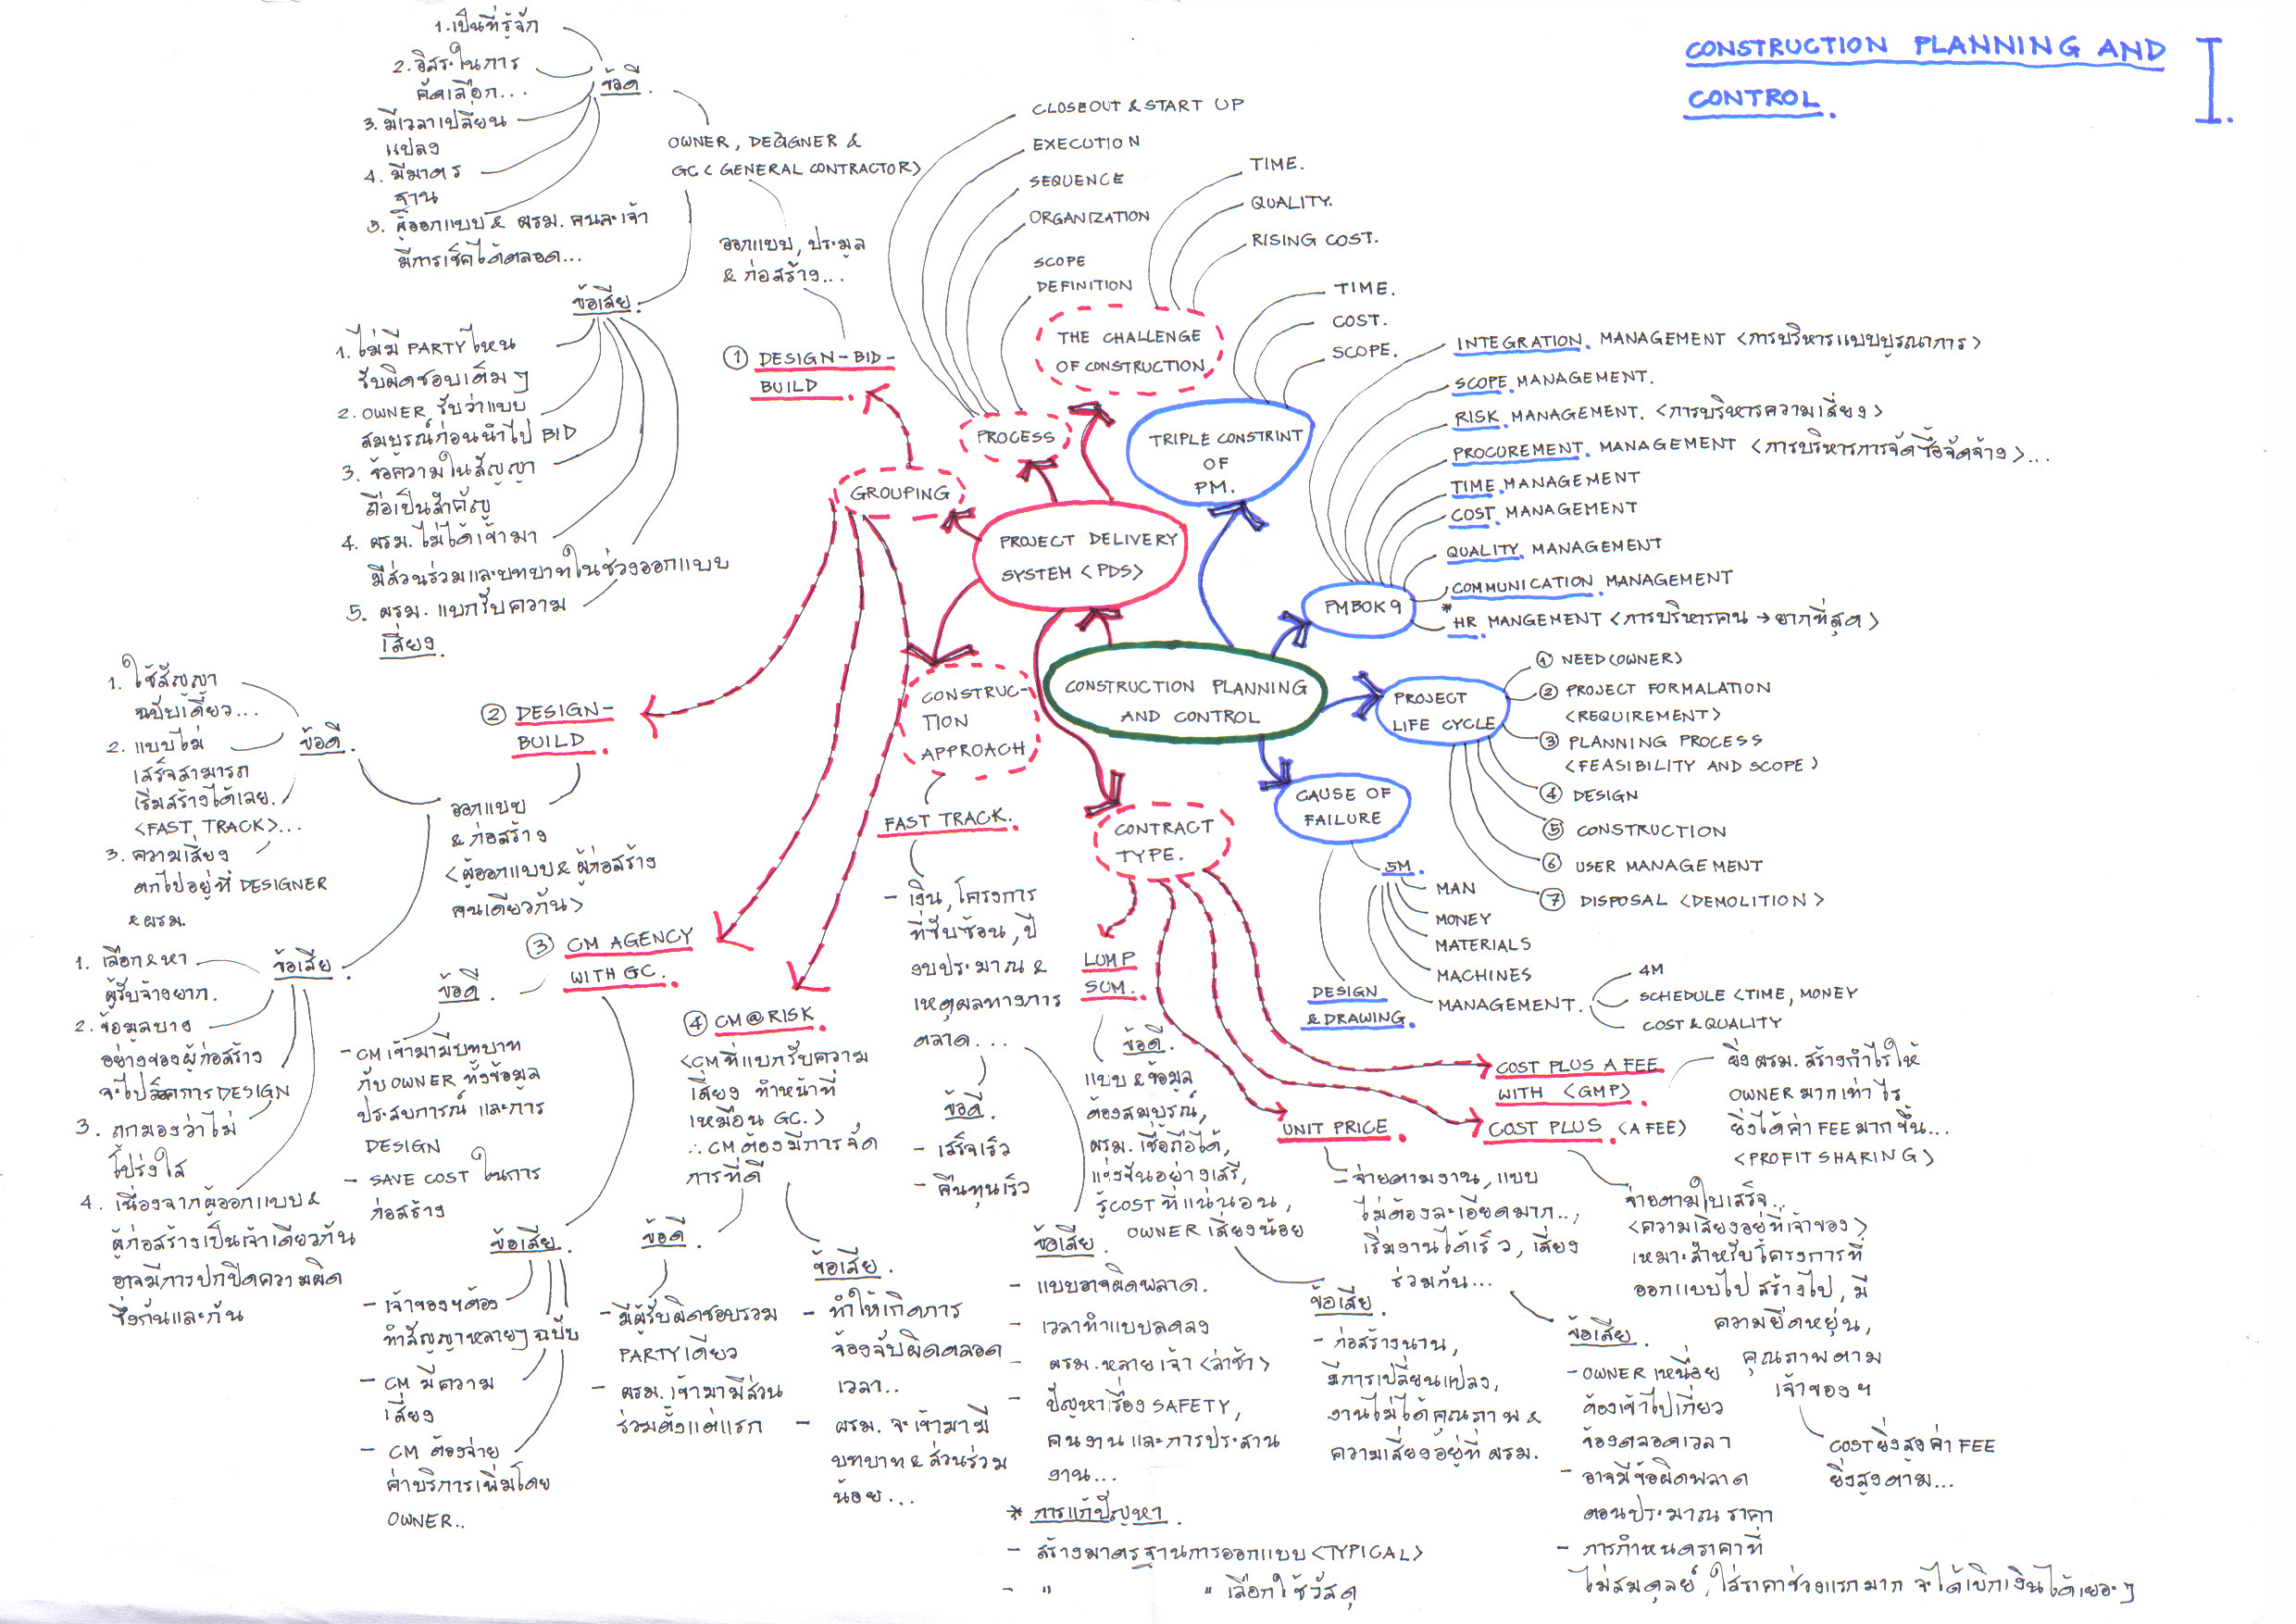 CONSTRUCTION PLANNING AND
CONTROL.
I.
CONSTRUCTION PLANNING
AND CONTROL
PROJECT DELIVERY
SYSTEM <PDS>
PROCESS
CLOSEOUT & START UP
EXECUTION
SEQUENCE
ORGANIZATION
SCOPE
DEFINITION
THE CHALLENGE
OF CONSTRUCTION
TIME.
QUALITY.
RISING COST.
TRIPLE CONSTRINT
OF
PM.
TIME.
COST.
SCOPE.
PMBOK 9
INTEGRATION. MANAGEMENT <การบริหารแบบบูรณาการ>
SCOPE. MANAGEMENT.
RISK. MANAGEMENT. <การบริหารความเสี่ยง>
PROCUREMENT. MANAGEMENT <การบริหารการจัดซื้อจัดจ้าง>...
TIME. MANAGEMENT
COST. MANAGEMENT
QUALITY. MANAGEMENT
COMMUNICATION. MANAGEMENT
* HR. MANGEMENT <การบริหารคน → ยากที่สุด>
PROJECT
LIFE CYCLE
① NEED (OWNER)
② PROJECT FORMALATION
<REQUIREMENT>
③ PLANNING PROCESS
<FEASIBILITY AND SCOPE>
④ DESIGN
⑤ CONSTRUCTION
⑥ USER MANAGEMENT
⑦ DISPOSAL <DEMOLITION>
CAUSE OF
FAILURE
5M.
MAN
MONEY
MATERIALS
MACHINES
MANAGEMENT.
4M
SCHEDULE <TIME, MONEY
COST & QUALITY
DESIGN
& DRAWING.
GROUPING
① DESIGN-BID-
BUILD.
ออกแบบ, ประมูล
& ก่อสร้าง...
OWNER, DESIGNER &
GC < GENERAL CONTRACTOR>
ข้อดี.
1. เป็นที่รู้จัก
2. อิสระในการ
คัดเลือก...
3. มีเวลาเปลี่ยน
แปลง
4. มีมาตร
ฐาน
5. ผู้ออกแบบ & ผรม. คนละเจ้า
มีการเช็คได้ตลอด...
ข้อเสีย.
1. ไม่มี PARTY ไหน
รับผิดชอบเต็มๆ
2. OWNER รับว่าแบบ
สมบูรณ์ก่อนนำไป BID
3. ข้อความในสัญญา
ถือเป็นสำคัญ
4. ผรม. ไม่ได้เข้ามา
มีส่วนร่วมและบทบาทในช่วงออกแบบ
5. ผรม. แบกรับความ
เสี่ยง.
② DESIGN-
BUILD.
ออกแบบ
& ก่อสร้าง
<ผู้ออกแบบ & ผู้ก่อสร้าง
คนเดียวกัน>
ข้อดี.
1. ใช้สัญญา
ฉบับเดียว...
2. แบบไม่
เสร็จสามารถ
เริ่มสร้างได้เลย.
<FAST TRACK>...
3. ความเสี่ยง
ตกไปอยู่ที่ DESIGNER
& ผรม.
ข้อเสีย.
1. เลือก & หา
ผู้รับจ้างยาก.
2. ข้อมูลบาง
อย่างของผู้ก่อสร้าง
จะไปล็อคการ DESIGN
3. ถูกมองว่าไม่
โปร่งใส
4. เนื่องจากผู้ออกแบบ &
ผู้ก่อสร้างเป็นเจ้าเดียวกัน
อาจมีการปกปิดความผิด
ซึ่งกันและกัน
③ CM AGENCY
WITH GC.
ข้อดี.
- CM เข้ามามีบทบาท
กับ OWNER ทั้งข้อมูล
ประสบการณ์ และการ
DESIGN
- SAVE COST ในการ
ก่อสร้าง
ข้อเสีย.
- เจ้าของฯต้อง
ทำสัญญาหลายๆ ฉบับ
- CM มีความ
เสี่ยง
- CM ต้องจ่าย
ค่าบริการเพิ่มโดย
OWNER..
④ CM@RISK.
<CM ที่แบกรับความ
เสี่ยง ทำหน้าที่
เหมือน GC.>
∴ CM ต้องมีการจัด
การที่ดี
ข้อดี.
- มีผู้รับผิดชอบรวม
PARTY เดียว
- ผรม. เข้ามามีส่วน
ร่วมตั้งแต่แรก
ข้อเสีย.
- ทำให้เกิดการ
จ้องจับผิดตลอด
เวลา..
- ผรม. จะเข้ามามี
บทบาท & ส่วนร่วม
น้อย...
CONSTRUC-
TION
APPROACH
FAST TRACK.
- เงิน, โครงการ
ที่ซับซ้อน, ปี
งบประมาณ &
เหตุผลทางการ
ตลาด...
ข้อดี.
- เสร็จเร็ว
- คืนทุนเร็ว
ข้อเสีย.
- แบบอาจผิดพลาด.
- เวลาทำแบบลดลง
- ผรม. หลายเจ้า <ล่าช้า>
- ปัญหาเรื่อง SAFETY,
คนงานและการประสาน
งาน...
* การแก้ปัญหา.
- สร้างมาตรฐานการออกแบบ <TYPICAL>
- " " เลือกใช้วัสดุ
CONTRACT
TYPE.
LUMP
SUM.
ข้อดี.
แบบ & ข้อมูล
ต้องสมบูรณ์,
ผรม. เชื่อถือได้,
แข่งขันอย่างเสรี,
รู้ COST ที่แน่นอน,
OWNER เสี่ยงน้อย
ข้อเสีย.
- ก่อสร้างนาน,
มีการเปลี่ยนแปลง,
งานไม่ได้คุณภาพ &
ความเสี่ยงอยู่ที่ ผรม.
UNIT PRICE.
- จ่ายตามงาน, แบบ
ไม่ต้องละเอียดมาก..,
เริ่มงานได้เร็ว, เสี่ยง
ร่วมกัน...
ข้อเสีย.
- OWNER เหนื่อย
ต้องเข้าไปเกี่ยว
ข้องตลอดเวลา
- อาจมีข้อผิดพลาด
ตอนประมาณราคา
- การกำหนดราคาที่
ไม่สมดุลย์, ใส่ราคาช่วงแรกมาก จะได้เบิกเงินได้เยอะๆ
COST PLUS A FEE
WITH <GMP>.
ยิ่ง ผรม. สร้างกำไรให้
OWNER มากเท่าไร
ยิ่งได้ค่า FEE มากขึ้น...
<PROFIT SHARING>
COST PLUS. (A FEE)
จ่ายตามใบเสร็จ...
<ความเสี่ยงอยู่ที่เจ้าของ>
เหมาะสำหรับโครงการที่
ออกแบบไป สร้างไป, มี
ความยืดหยุ่น,
คุณภาพตาม
เจ้าของฯ
COST ยิ่งสูง ค่า FEE
ยิ่งสูงตาม...